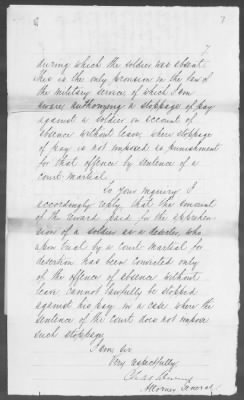 7
during which the soldier was absent
this is the only provision in the law of
the military service of which I am
aware authorizing a stoppage of pay
against a soldier on account of
absence without leave, when stoppage
of pay is not imposed as punishment
for that offence by sentence of a
court martial.
To your inquiry I
accordingly reply, that the amount
of the reward paid for the apprehen-
sion of a soldier as a deserter, who
upon trial by a court martial for
desertion has been convicted only
of the offence of absence without
leave cannot lawfully be stopped
against his pay in a case where the
sentence of the court does not impose
such stoppage.
I am sir
Very respectfully
Chas Devens
Attorney General